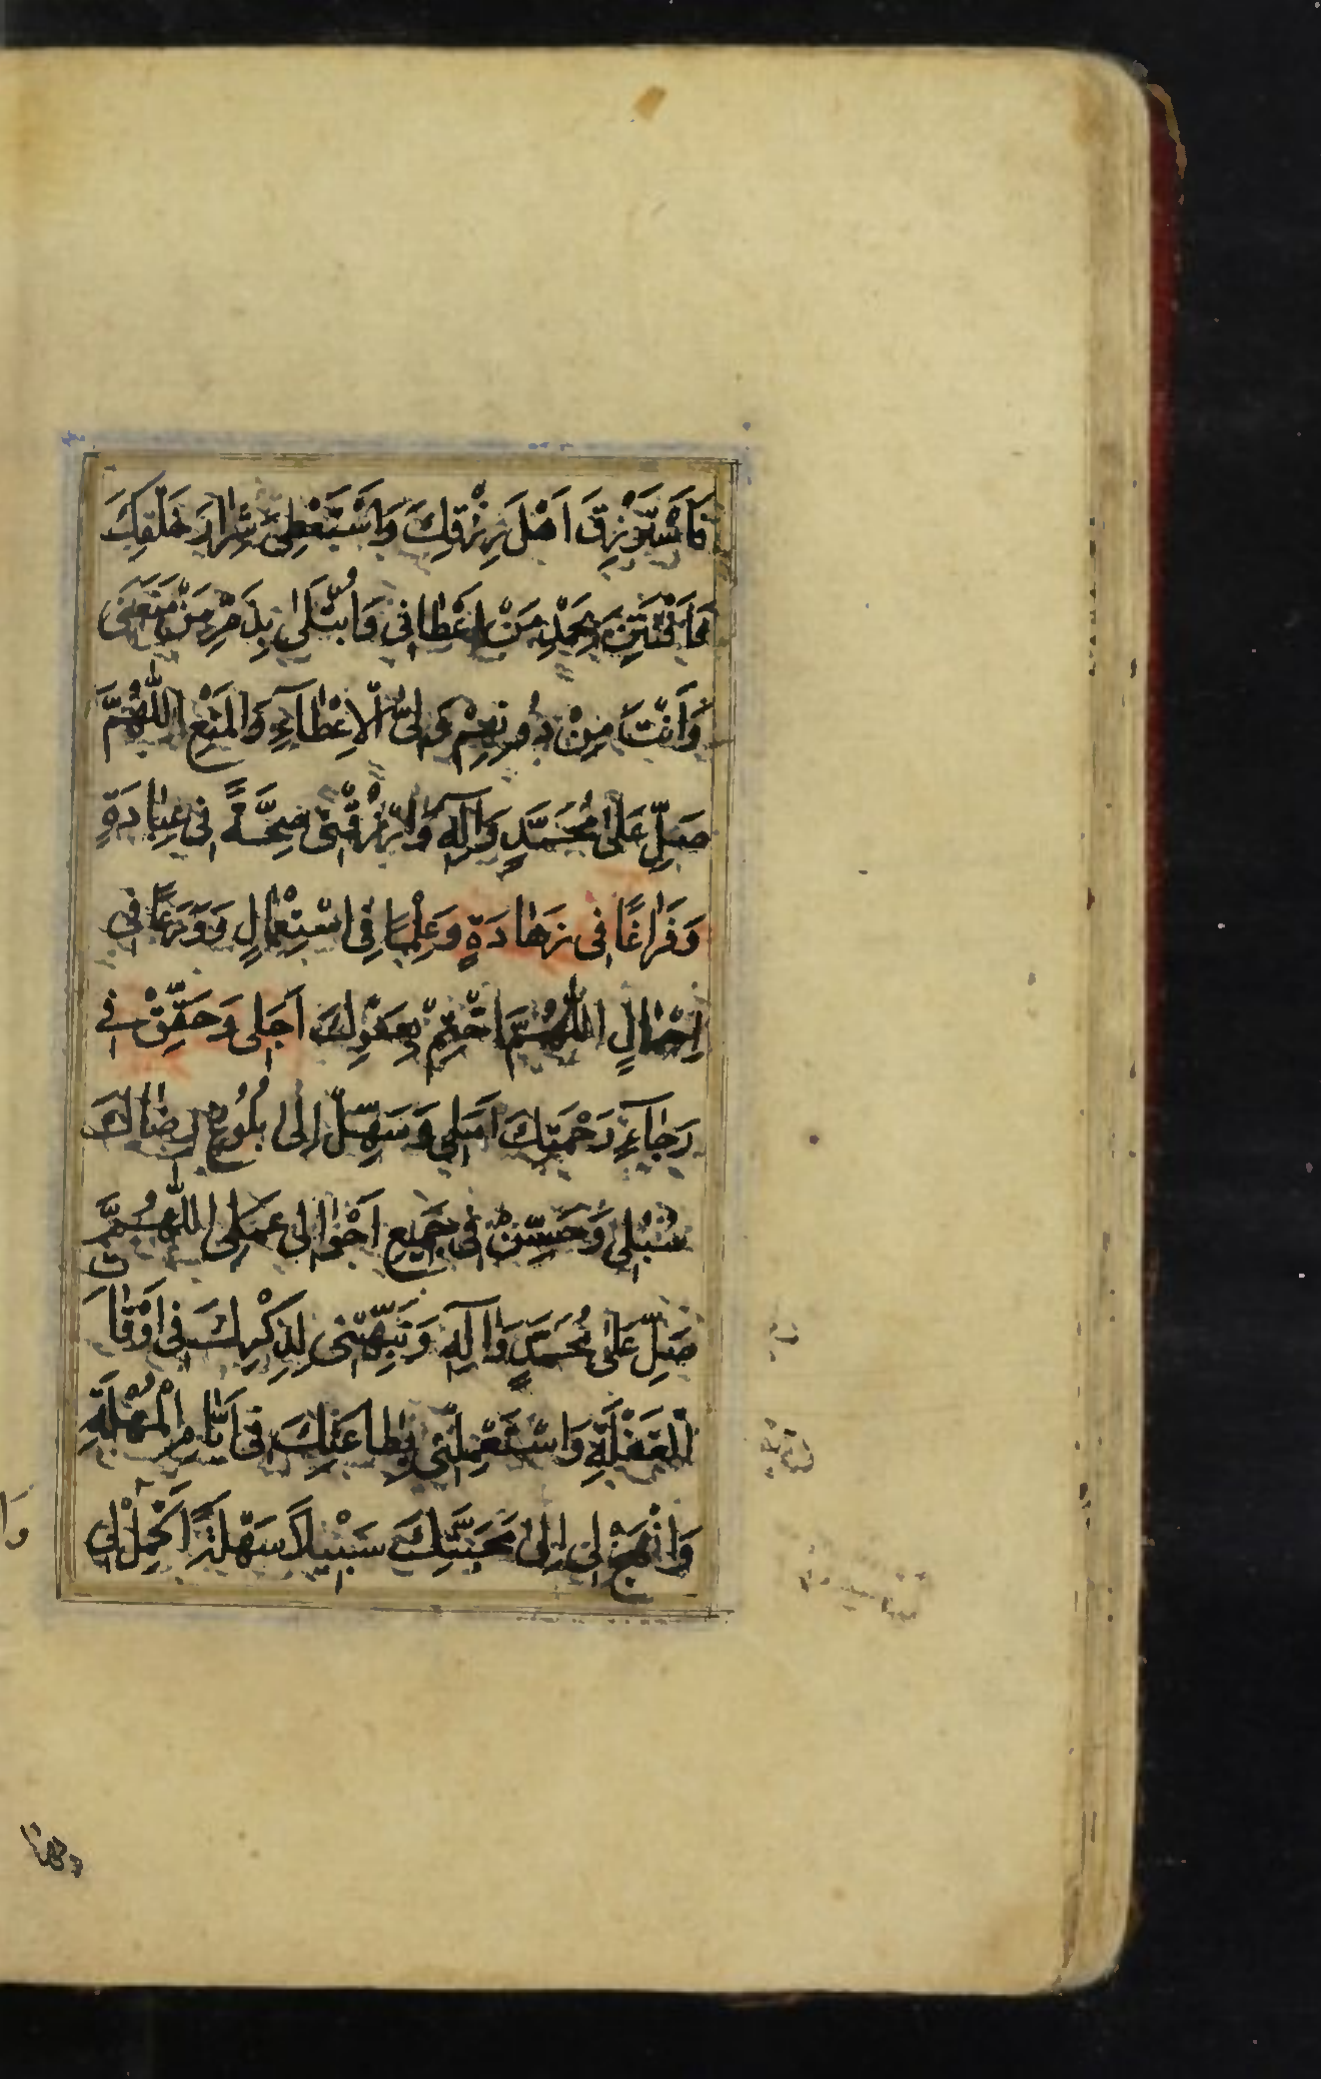 فَاَسْتَرْزِقَ اَهْلَ رِزْقِكَ وَاَسْتَعْطِيَ شِرٰارَ خَلْقِكَ
فَاَفْتَتِنَ بِحَمْدِ مَنْ اَعْطٰانِى وَاُبْتَلٰى بِذَمِّ مَنْ مَنَعَنِى
وَاَنْتَ مِنْ دُونِهِمْ وَلِىُّ الْاِعْطٰآءِ وَالْمَنْعِ اَللّٰهُمَّ
صَلِّ عَلٰى مُحَمَّدٍ وَاٰلِهِ وَارْزُقْنِى صِحَّةً فِى عِبٰادَةٍ
وَفَرٰاغًا فِى زَهٰادَةٍ وَعِلْمًا فِى اسْتِعْمٰالٍ وَوَرَعًا فِى
اِجْمٰالٍ اَللّٰهُمَّ اخْتِمْ بِعَفْوِكَ اَجَلِى وَحَقِّقْ فِى
رَجٰآءِ رَحْمَتِكَ اَمَلِى وَسَهِّلْ اِلٰى بُلُوغِ رِضٰاكَ
سُبُلِى وَحَسِّنْ فِى جَمِيعِ اَحْوٰالِى عَمَلِى اَللّٰهُمَّ
صَلِّ عَلٰى مُحَمَّدٍ وَاٰلِهِ وَنَبِّهْنِى لِذِكْرِكَ فِى اَوْقٰاتِ
الْغَفْلَةِ وَاسْتَعْمِلْنِى بِطٰاعَتِكَ فِى اَيّٰامِ الْمُهْلَةِ
وَانْهَجْ لِى اِلٰى مَحَبَّتِكَ سَبِيلًا سَهْلَةً اَكْمِلْ لِى